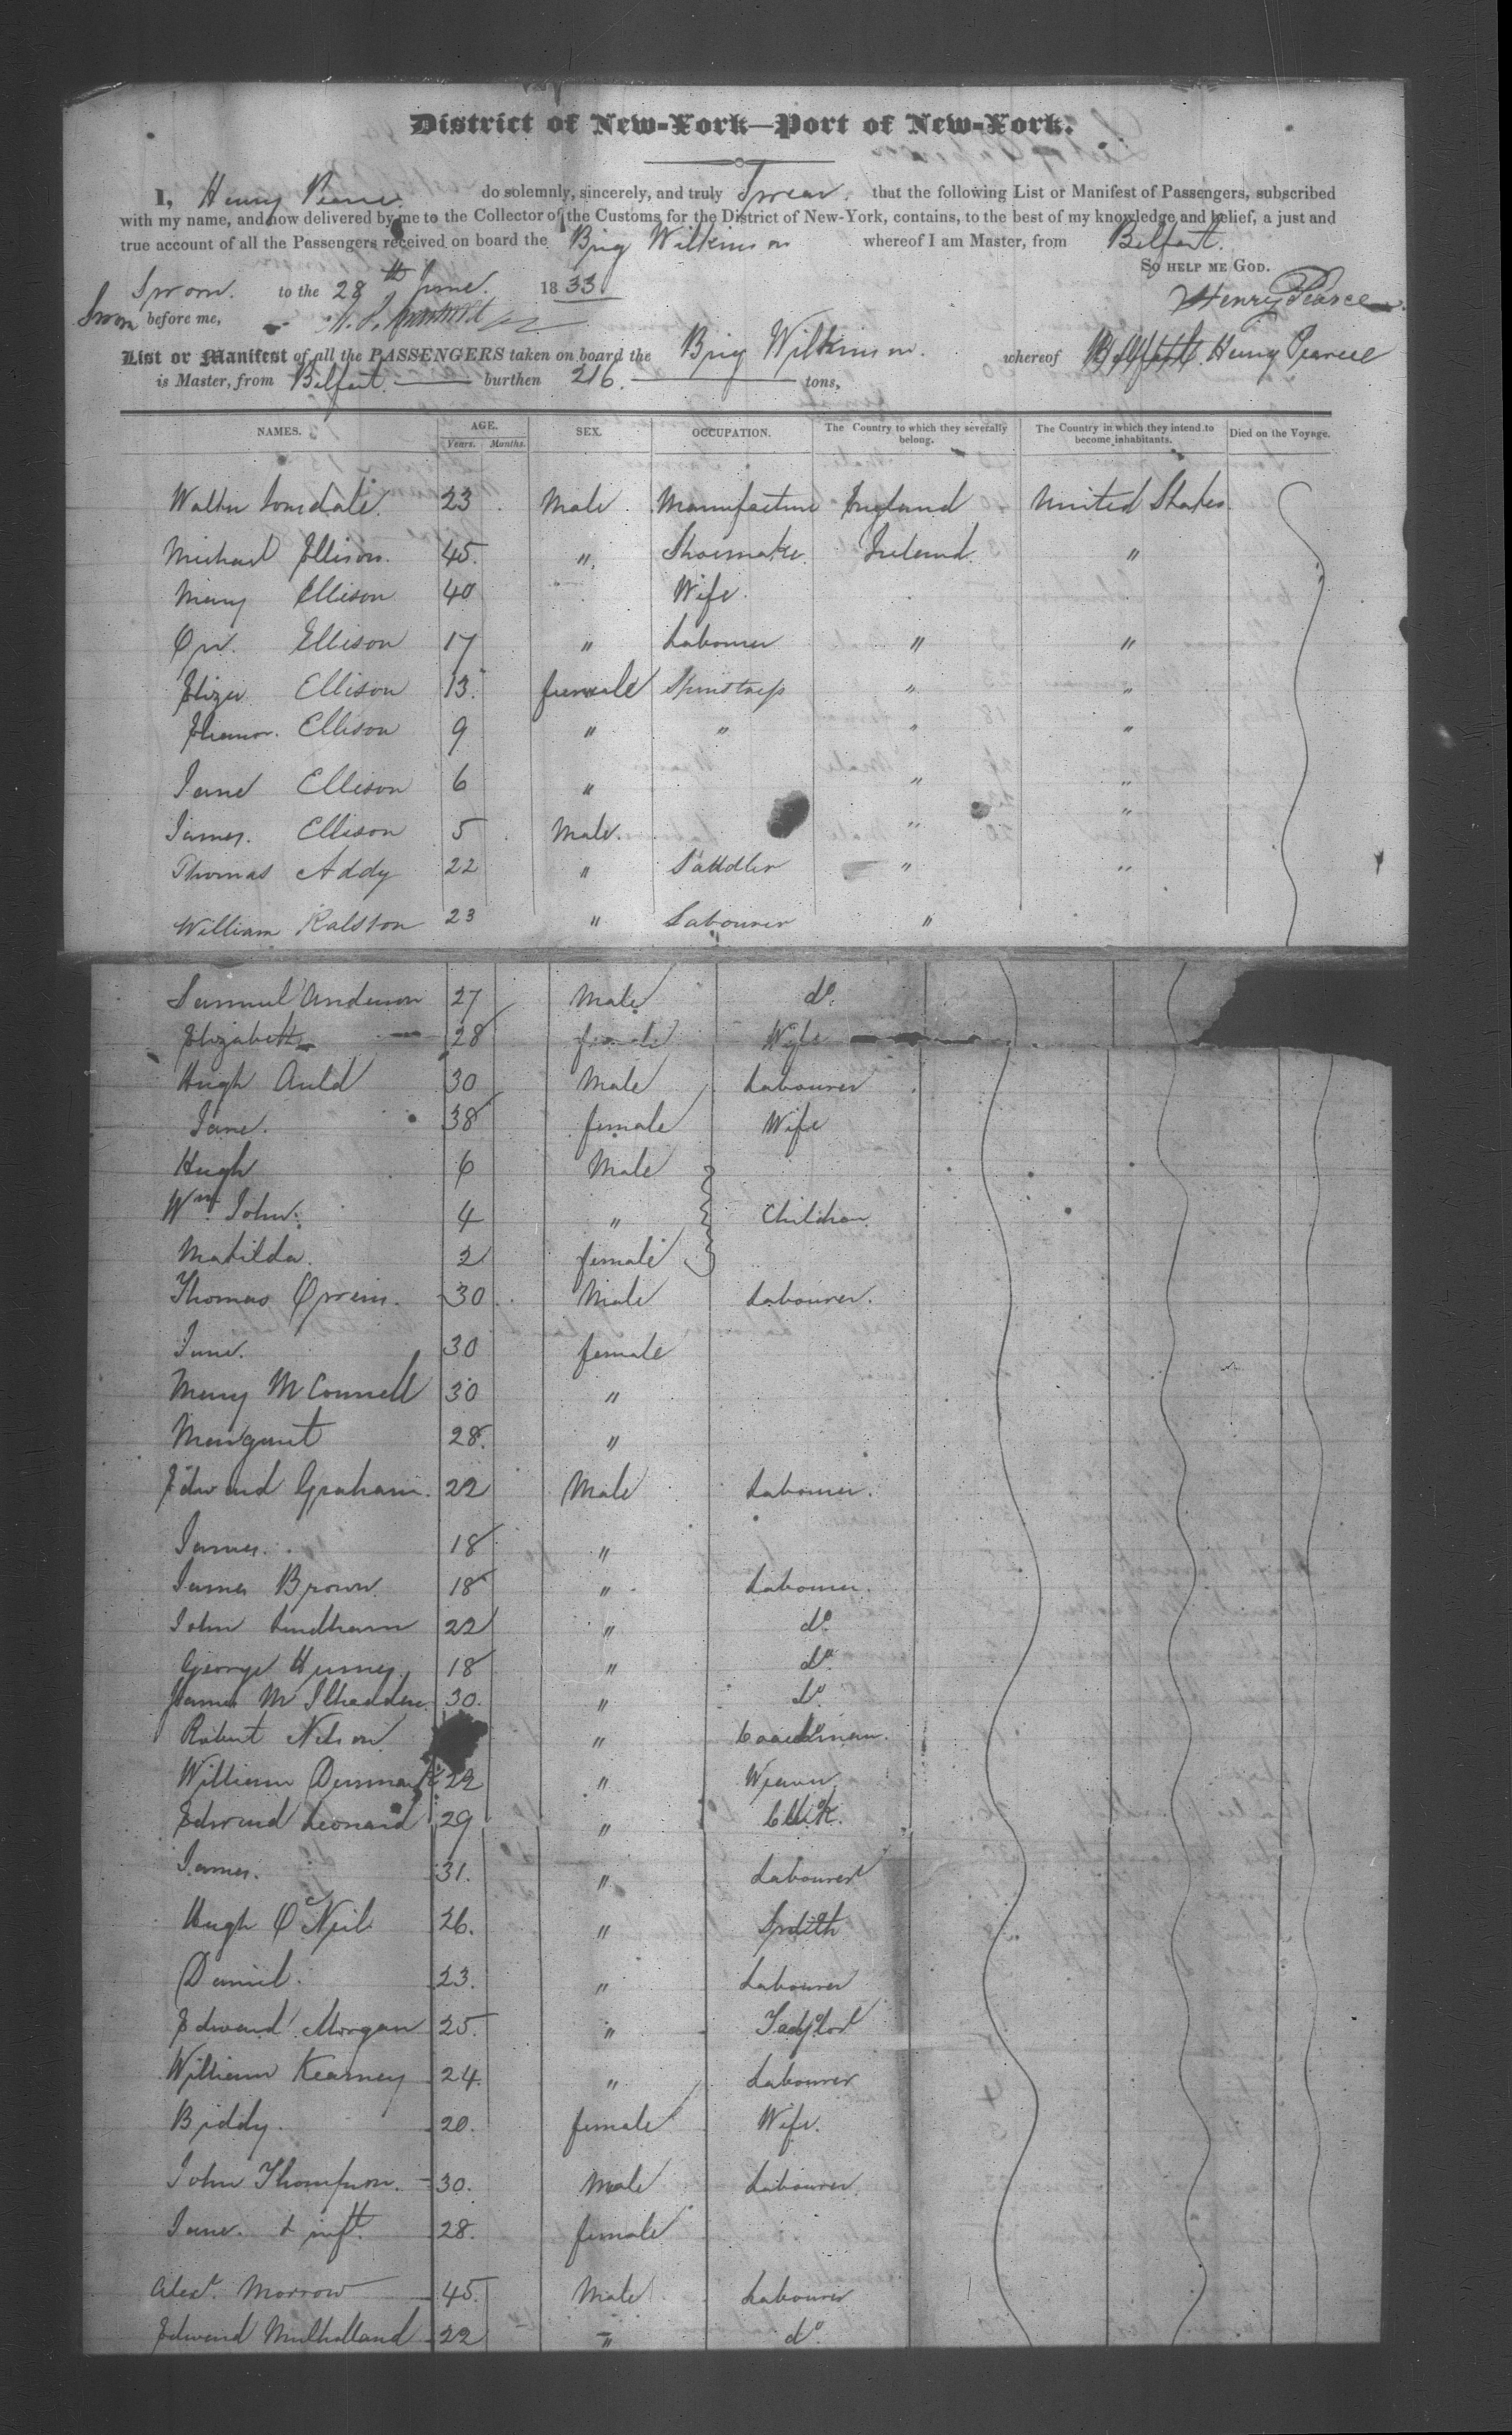 District of New-York—Port of New-York.
I, Henry Pearce do solemnly, sincerely, and truly Swear that the following List or Manifest of Passengers, subscribed
with my name, and now delivered by me to the Collector of the Customs for the District of New-York, contains, to the best of my knowledge and belief, a just and
true account of all the Passengers received on board the Brig Wilkinson whereof I am Master, from Belfast.
So help me God.
Sworn. to the 28th June. 1833
Henry Pearce
Sworn before me,
List or Manifest of all the PASSENGERS taken on board the Brig Wilkinson. whereof Belfast Henry Pearce
is Master, from Belfast. burthen 216. tons,
NAMES. AGE. SEX. OCCUPATION. The Country to which they severally belong. The Country in which they intend to become inhabitants. Died on the Voyage.
Years. Months.
Walter Lonsdale. 23 Male. Manufacture England United States.
Michael Ellison. 45. " Shoemaker Ireland. "
Mary Ellison 40 Wife.
Orr. Ellison 17 " Labourer " "
Eliza Ellison 13. female Spinstress " "
Eleanor. Ellison 9 " " " "
Jane Ellison 6 " " "
James. Ellison 5 Male. " "
Thomas Addy 22 " Saddler " "
William Ralston 23 " Labourer "
Samuel Anderson 27 Male do.
Elizabeth 28 female Wife
Hugh Auld 30 Male Labourer
Jane. 38 female Wife
Hugh 6 Male
Wm. John. 4 " Children.
Matilda. 2 female
Thomas 30 Male Labourer.
Jane. 30 female
Mary McConnell 30 "
Margaret 28. "
Edward Graham. 22 Male Labourer.
James. 18 "
James Brown 18 " Labourer.
John 22 " do.
George 18 " do.
James 30. " do.
Robert Nelson " Coachman.
William 22 " Weaver.
Edward Leonard 29 " Clerk.
James. 31. " Labourer
Hugh O'Neil 26. " Smith
Daniel. 23. " Labourer
Edward Morgan 25. " Taylor
William Kearney 24. " Labourer
Biddy. 20. female Wife.
John Thompson. 30. Male Labourer.
Jane. & inft. 28. female
Alexr. Morrow 45. Male Labourer
Edward Mulholland 22 " do.